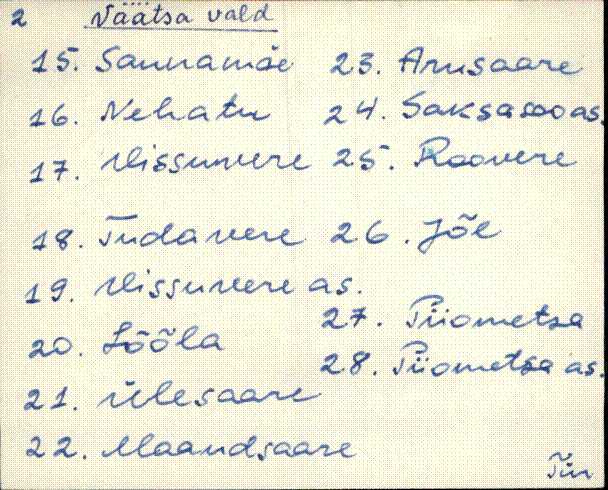 2 Väätsa vald
15. Saunamäe
16. Nehatu
17. Vissuvere
18. Tudavere
19. Vissuvere as.
20. Lõõla
21. Ülesaare
22. Maandsaare
23. Arusaare
24. Saksasoo as.
25. Roovere
26. Jõe
27. Piiometsa
28. Piiometsa as.
Tür